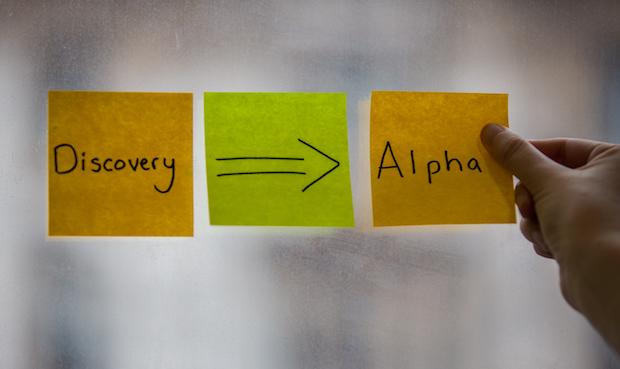 Discovery
Alpha